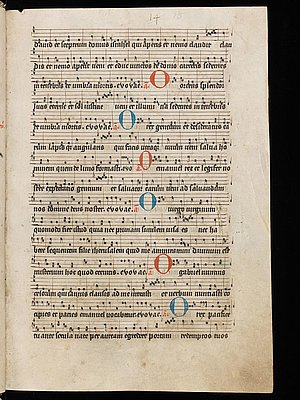 14 15
david et sceptrum domus israhel qui aperis et nemo claudit clau
dis et nemo aperit veni et educ vinctos de domo carceris sedentes
in tenebris et umbra mortis. evovae. O oriens splendor
lucis eterne et sol iusticie veni et illumina sedentes in tenebris
et umbra mortis. evovae. O rex gentium et desideratus ea
rum lapisque angularis qui facis utraque unum salva ho
minem quem de limo formasti. evo O emanuel rex et legifer no
ster expectatio gentium et salvator earum veni ad salvandum
nos domine deus noster. evovae. O virgo virginum
quomodo fiet istud quia nec primam similem visa es nec ha
bere sequentem filie iherusalem quid me admiramini divinum est
misterium hoc quod cernitis. evovae. O gabriel nuntius
celorum qui ianuis clausis ad me intrasti et verbum nuntiasti co
cipies et paries emanuel vocabitur. evovae. O rex pacifice
tu ante secula nate per auream egredere portam redemptos tuos